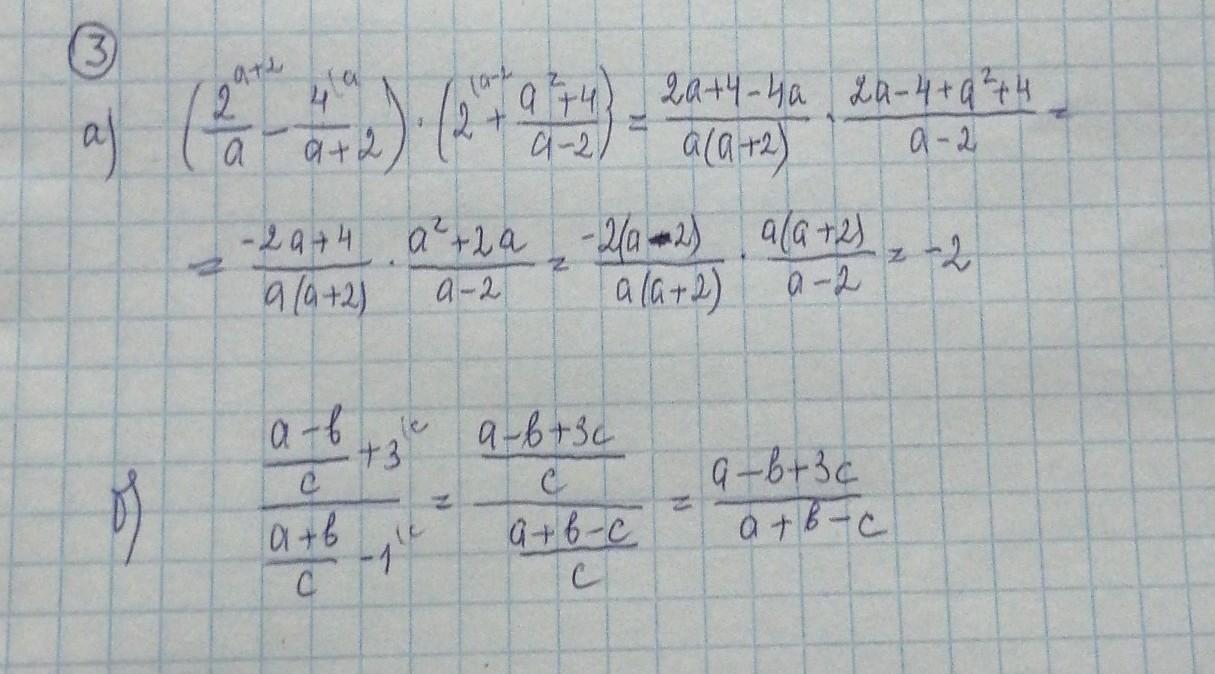 ③
а) (2/a^(a+2 - 4/(a+2)^(a) · (2^(a-2 + (a²+4)/(a-2)) = (2a+4-4a)/(a(a+2)) · (2a-4+a²+4)/(a-2) =
= (-2a+4)/(a(a+2)) · (a²+2a)/(a-2) = (-2(a-2))/(a(a+2)) · (a(a+2))/(a-2) = -2
б) ((a-b)/c + 3^(c)/((a+b)/c - 1^(c) = ((a-b+3c)/c)/((a+b-c)/c) = (a-b+3c)/(a+b-c)